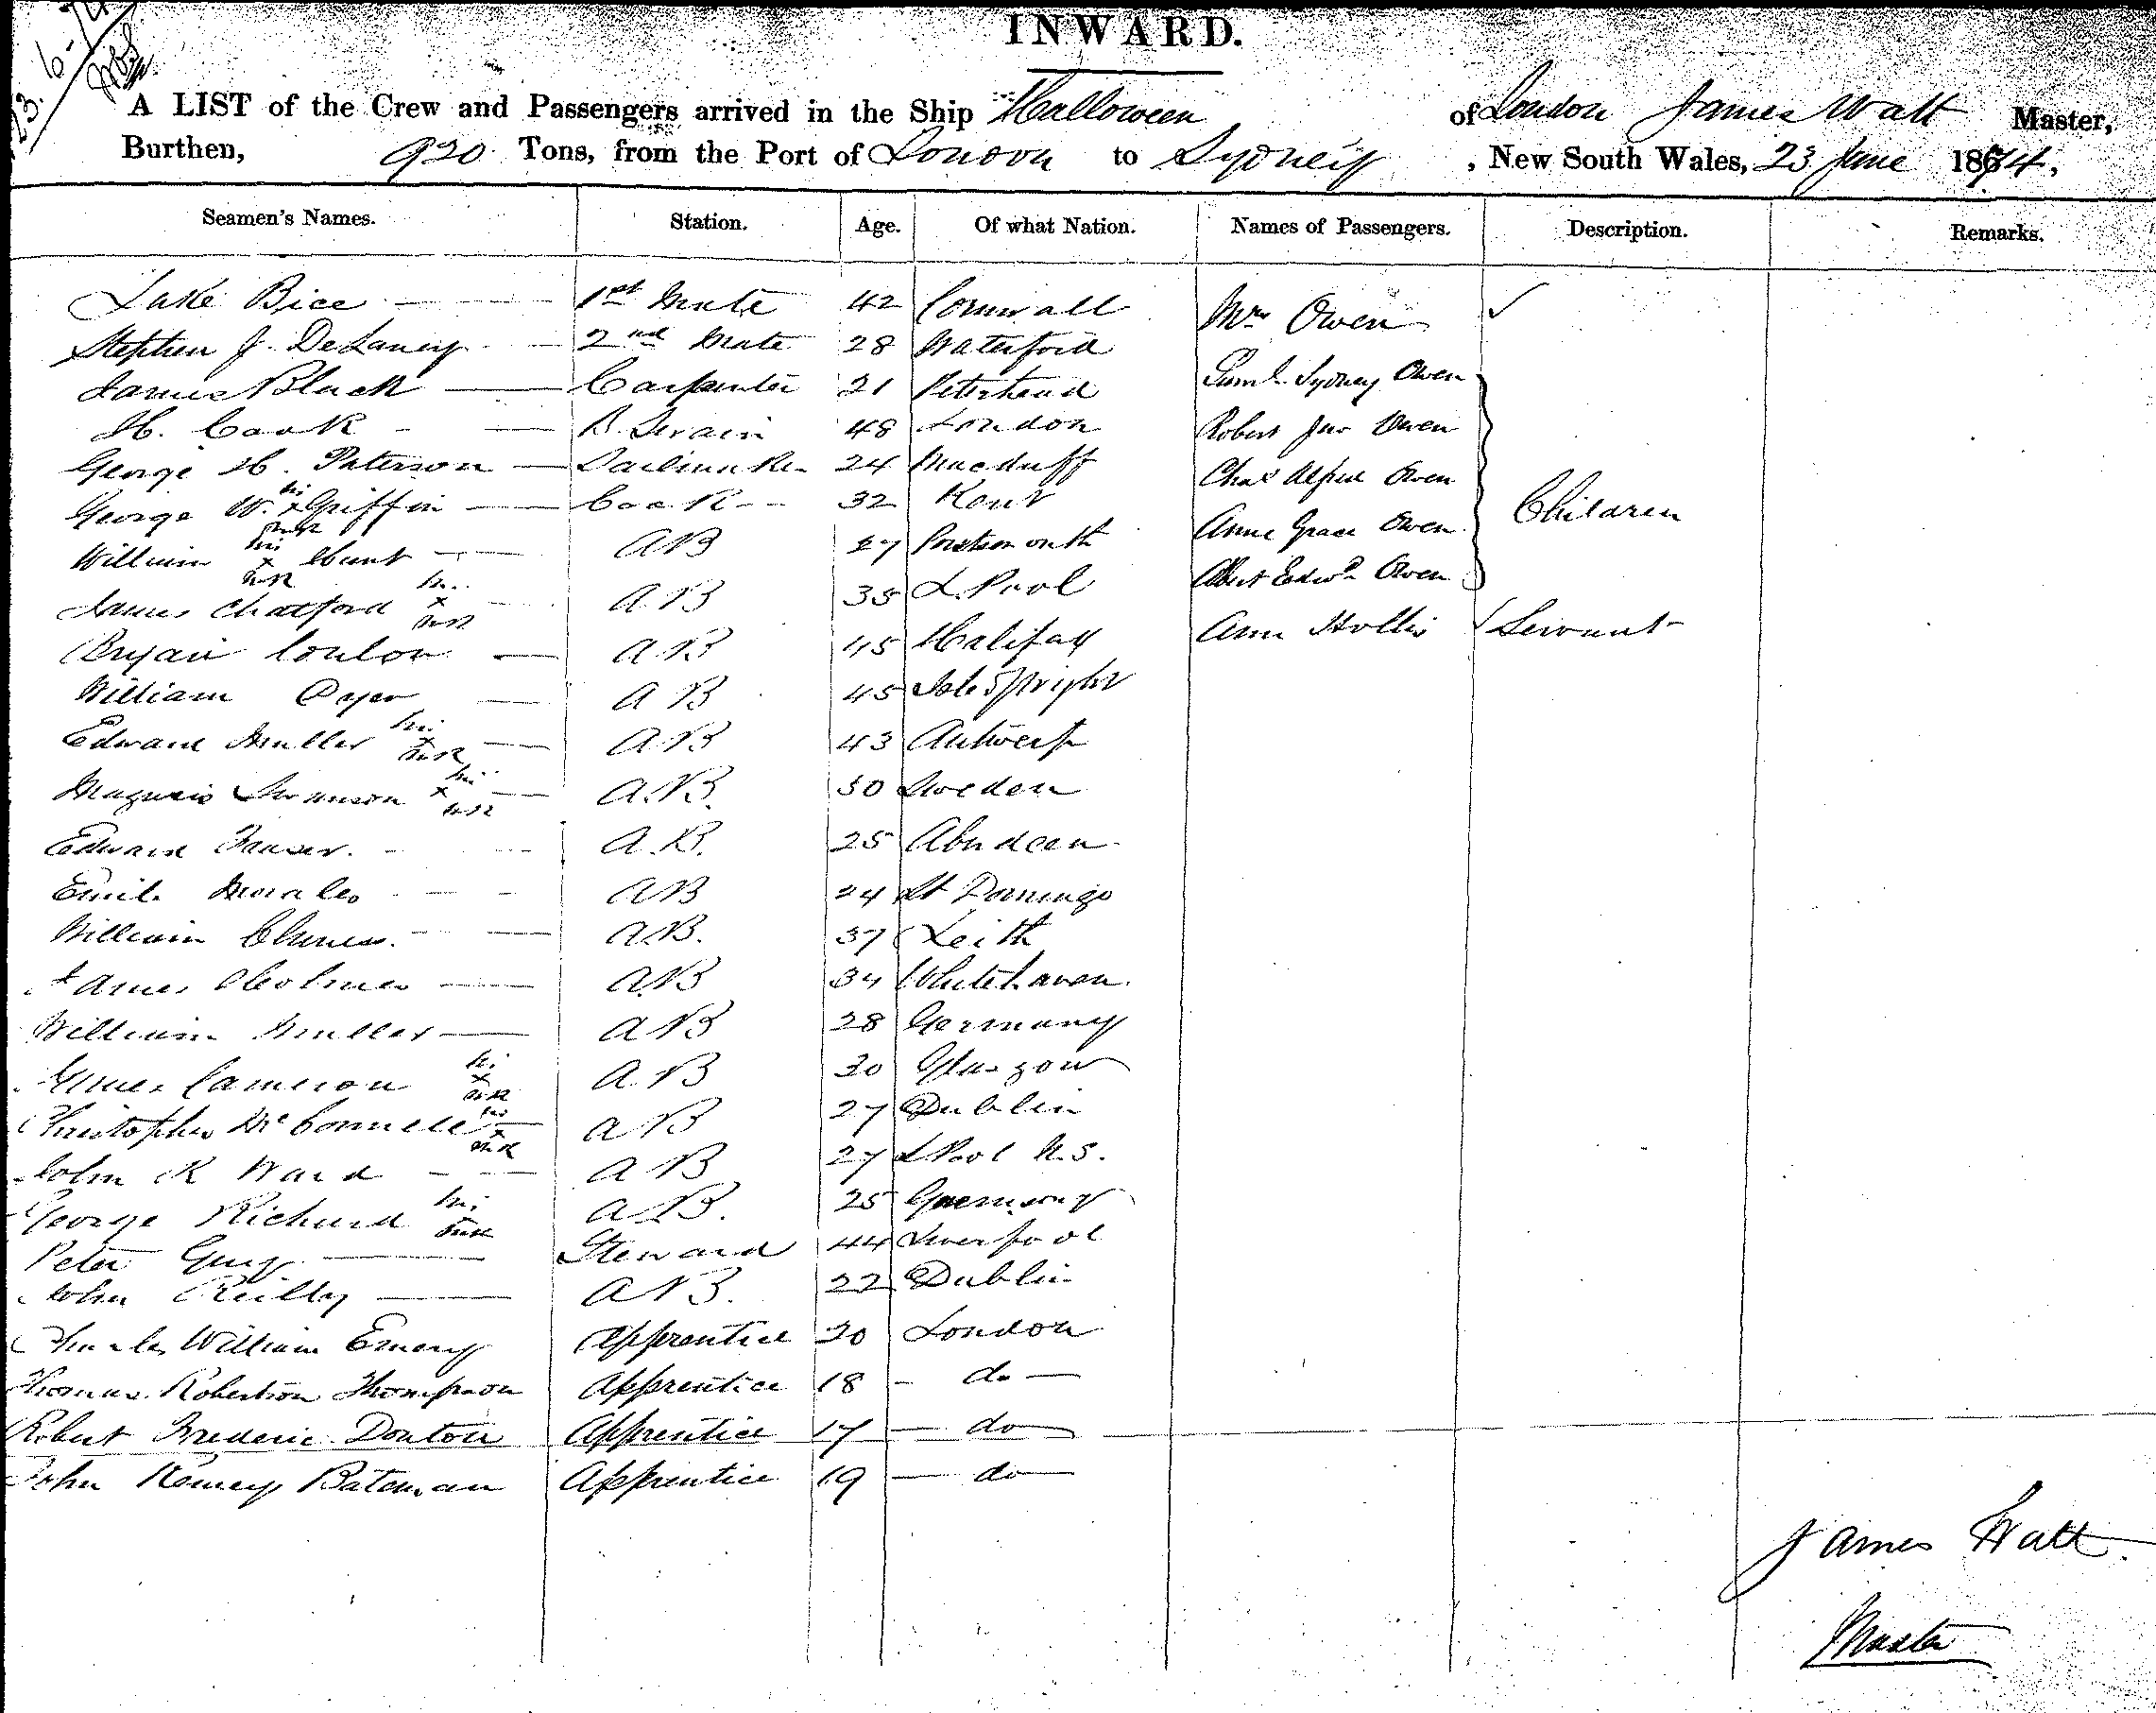 INWARD.
A LIST of the Crew and Passengers arrived in the Ship Halloween of London James Watt Master,
Burthen, 920 Tons, from the Port of London to Sydney, New South Wales, 23 June 1874,
Seamen's Names. Station. Age. Of what Nation. Names of Passengers. Description. Remarks.
Luke Bice 1st Mate 42 Cornwall Mrs Owen ✓
Stephen J. DeLaney 2nd Mate 28 Waterford
James Black Carpenter 21 Peterhead Saml. Sydney Owen
H. Cook B. Swain 48 London Robert Jno Owen
George H. Paterson Sailmaker 24 Macduff Chas Alfred Owen
George W. his x mark Griffin Cook 32 Kent Anne Grace Owen Children
William his x mark Hunt AB 27 Portsmouth Albert Edwd Owen
James Chatford his x mark AB 35 L.Pool
Bryan Conlon AB 45 Halifax Ann Hollis Servant
William AB 45 Isle of Wight
Edward Muller his x mark AB 43 Antwerp
Magnus Swanson his x mark A.B. 50 Sweden
Edward Fraser. A.B. 25 Aberdeen
Emile Morales AB 24 St Domingo
William Clunes. AB. 37 Leith
James Holmes AB 34 Whitehaven.
William Muller AB 28 Germany
James Cameron his x mark AB 30 Glasgow
Christopher McConnell his x mark AB 27 Dublin
John R Ward AB 27 LPool N.S.
George Richard his mark AB. 25 Guernsey
Peter Steward 44 Liverpool
John Reilly AB. 22 Dublin
Charles William Emery Apprentice 20 London
Thomas Robertson Thompson Apprentice 18 - do -
Robert Frederic Douton Apprentice 17 - do
John Bateman Apprentice 19 - do -
James Watt.
Master